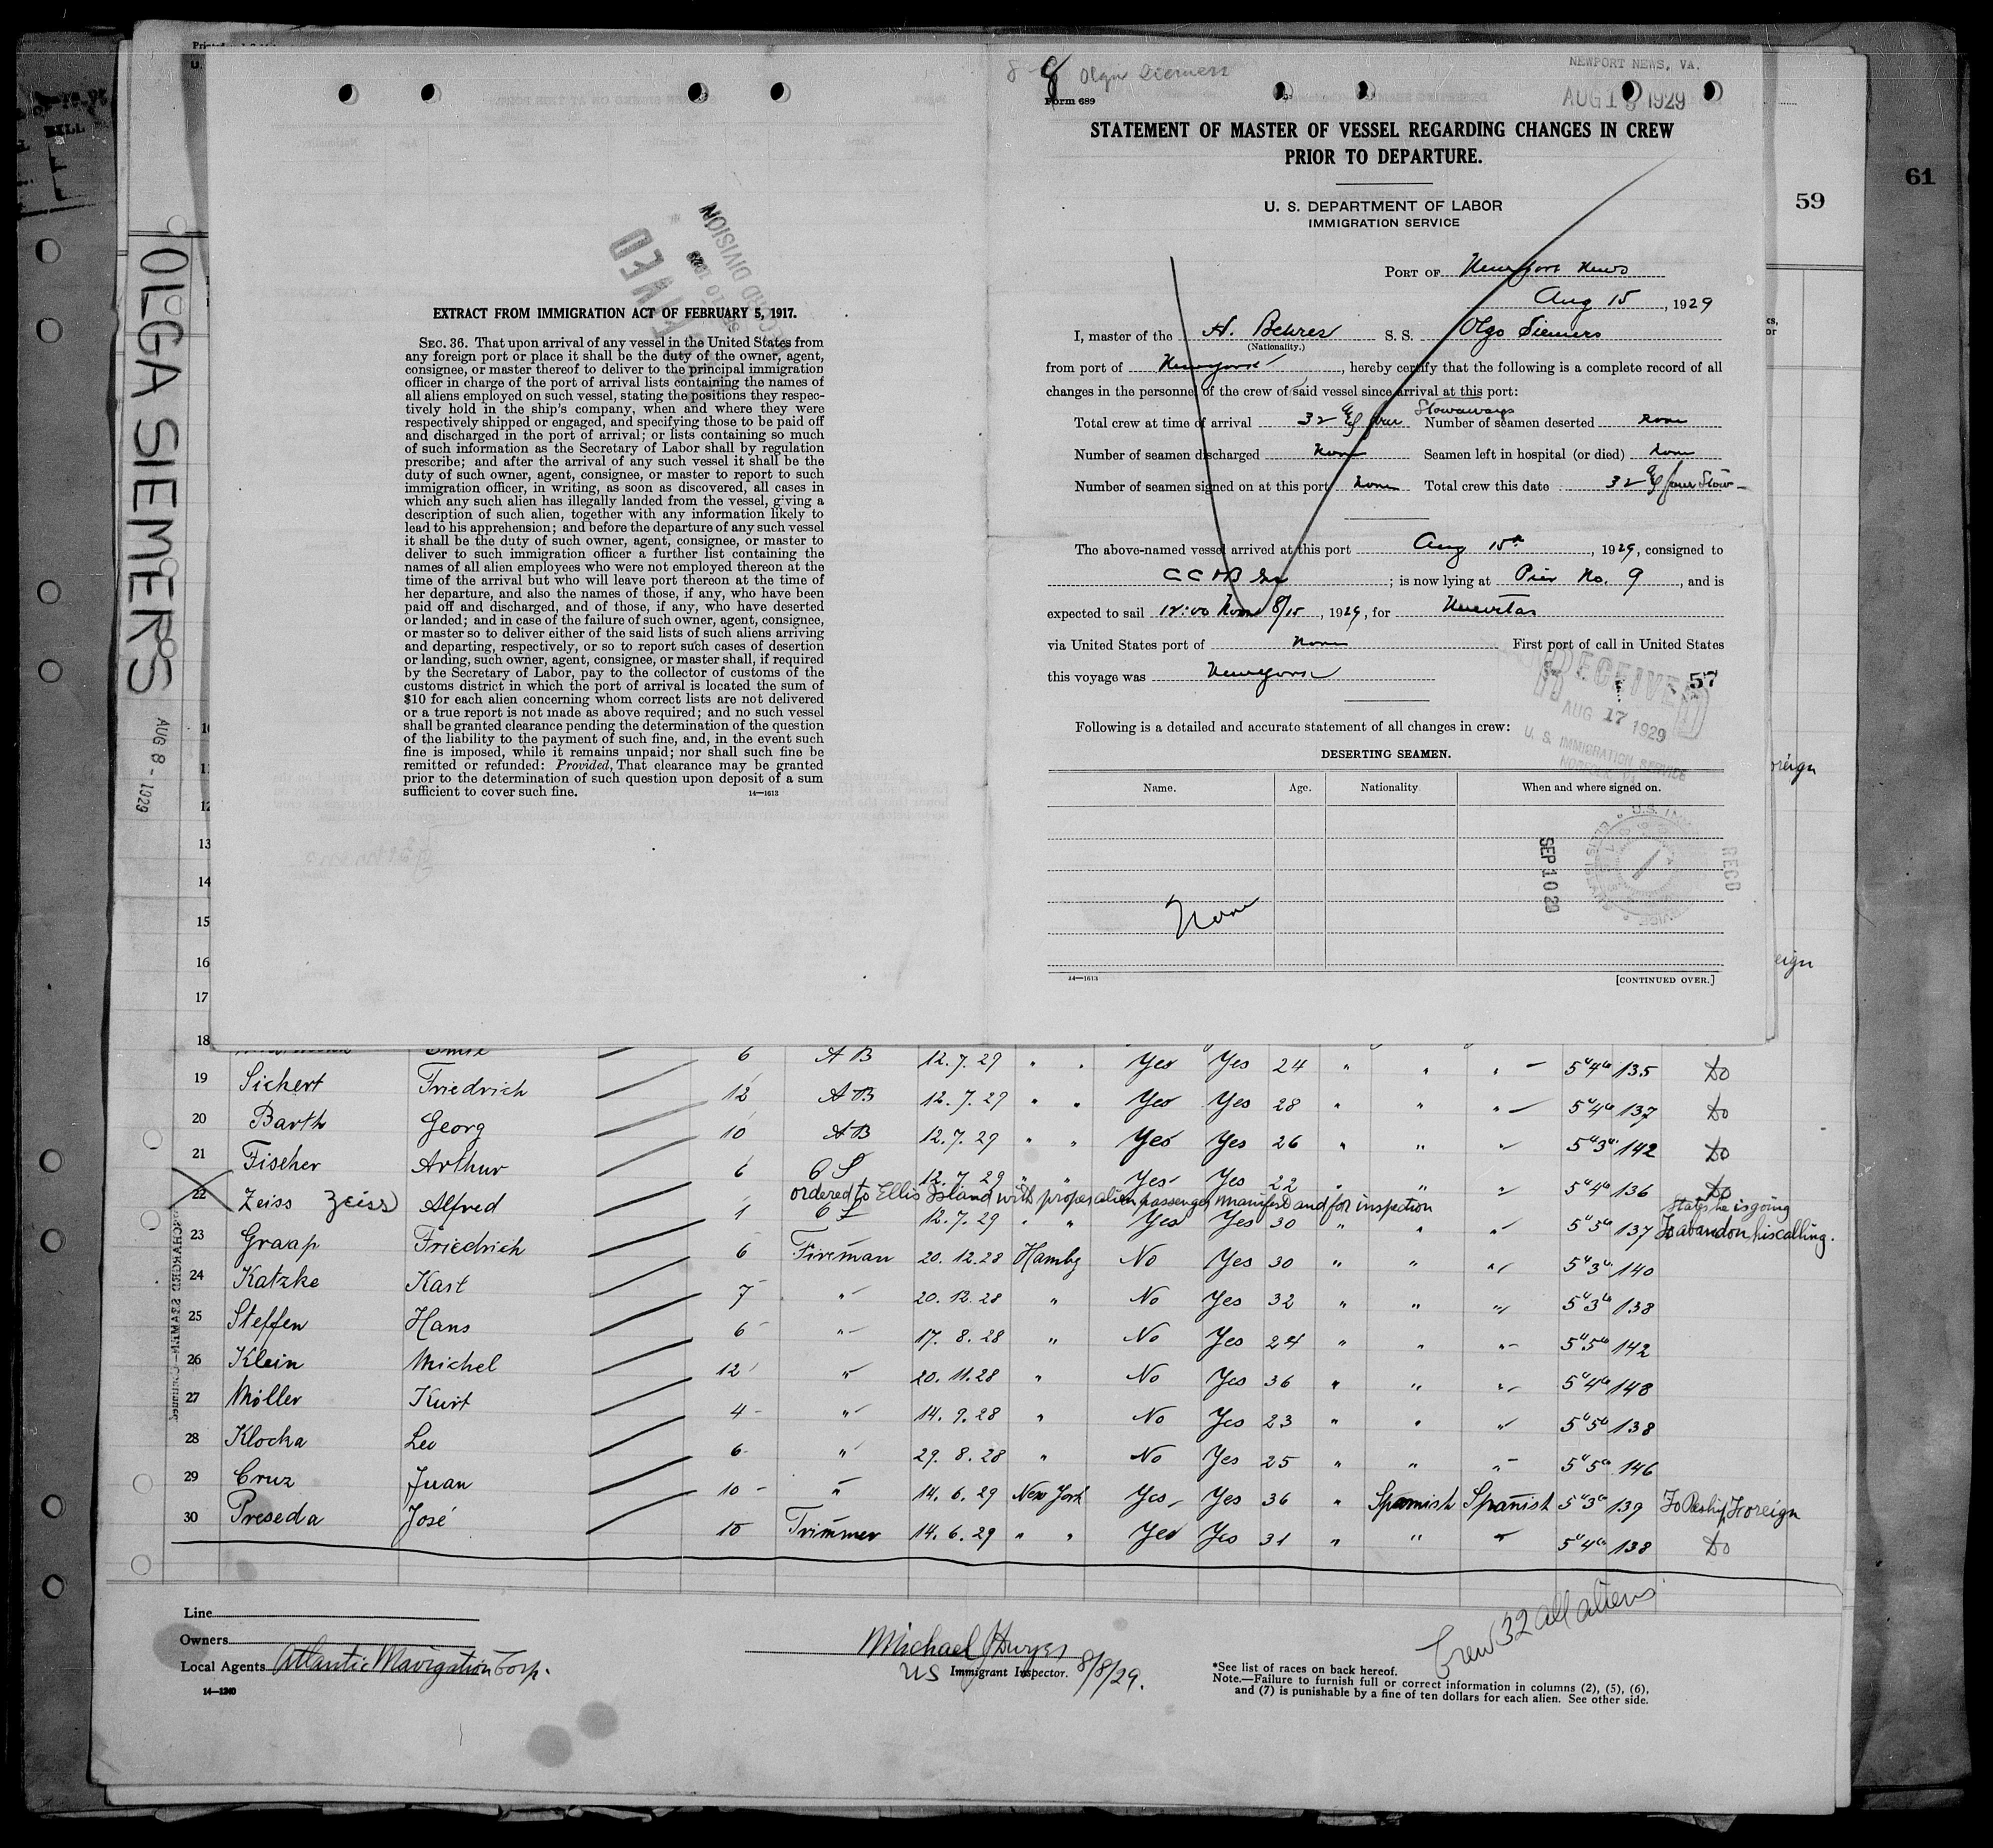 OLGA SIEMERS
AUG 8 - 1929
61
59
EXTRACT FROM IMMIGRATION ACT OF FEBRUARY 5, 1917.
SEC. 36. That upon arrival of any vessel in the United States from
any foreign port or place it shall be the duty of the owner, agent,
consignee, or master thereof to deliver to the principal immigration
officer in charge of the port of arrival lists containing the names of
all aliens employed on such vessel, stating the positions they respec-
tively hold in the ship's company, when and where they were
respectively shipped or engaged, and specifying those to be paid off
and discharged in the port of arrival; or lists containing so much
of such information as the Secretary of Labor shall by regulation
prescribe; and after the arrival of any such vessel it shall be the
duty of such owner, agent, consignee, or master to report to such
immigration officer, in writing, as soon as discovered, all cases in
which any such alien has illegally landed from the vessel, giving a
description of such alien, together with any information likely to
lead to his apprehension; and before the departure of any such vessel
it shall be the duty of such owner, agent, consignee, or master to
deliver to such immigration officer a further list containing the
names of all alien employees who were not employed thereon at the
time of the arrival but who will leave port thereon at the time of
her departure, and also the names of those, if any, who have been
paid off and discharged, and of those, if any, who have deserted
or landed; and in case of the failure of such owner, agent, consignee,
or master so to deliver either of the said lists of such aliens arriving
and departing, respectively, or so to report such cases of desertion
or landing, such owner, agent, consignee, or master shall, if required
by the Secretary of Labor, pay to the collector of customs of the
customs district in which the port of arrival is located the sum of
$10 for each alien concerning whom correct lists are not delivered
or a true report is not made as above required; and no such vessel
shall be granted clearance pending the determination of the question
of the liability to the payment of such fine, and, in the event such
fine is imposed, while it remains unpaid; nor shall such fine be
remitted or refunded: Provided, That clearance may be granted
prior to the determination of such question upon deposit of a sum
sufficient to cover such fine.
14—1613
8 Olga Siemers
Form 689
NEWPORT NEWS, VA.
AUG 1 1929
STATEMENT OF MASTER OF VESSEL REGARDING CHANGES IN CREW
PRIOR TO DEPARTURE.
U. S. DEPARTMENT OF LABOR
IMMIGRATION SERVICE
PORT OF Newport News
Aug 15, 1929
I, master of the H. Behres S. S. Olga Siemers
(Nationality.)
from port of Newyork, hereby certify that the following is a complete record of all
changes in the personnel of the crew of said vessel since arrival at this port:
Stowaways
Total crew at time of arrival 32 & four Number of seamen deserted none
Number of seamen discharged none Seamen left in hospital (or died) none
Number of seamen signed on at this port none Total crew this date 32 & four Stow-
The above-named vessel arrived at this port Aug 15th, 1929, consigned to
; is now lying at Pier No. 9, and is
expected to sail 12:00 Noon 8/15, 1929, for Nuevitas
via United States port of None First port of call in United States
this voyage was Newyork
57
RECEIVED
AUG 17 1929
U. S. IMMIGRATION SERVICE
Following is a detailed and accurate statement of all changes in crew:
DESERTING SEAMEN.
Name. Age. Nationality When and where signed on.
SEP 10 29
RECD
None
14—1613 [CONTINUED OVER.]
12
13
14
15
16
17
18 6 AB 12.7.29 " " Yes Yes 24 " " " 5"4" 135 Do
19 Sichert Friedrich 12 AB 12.7.29 " " Yes Yes 28 " " " 5"4" 137 Do
20 Barth Georg 10 AB 12.7.29 " " Yes Yes 26 " " " 5"3" 142 Do
21 Fischer Arthur 6 OS 12.7.29 " " Yes Yes 22 " " " 5"4" 136 Do
ordered to Ellis Island with proper alien passenger manifest and for inspection States he is going
22 Zeiss Zeiss Alfred 1 OS 12.7.29 " " Yes Yes 30 " " " 5"5" 137 To abandon his calling.
23 Graap Friedrich 6 Fireman 20.12.28 Hambg No Yes 30 " " " 5"3" 140
24 Katzke Karl 7 " 20.12.28 " No Yes 32 " " " 5"3" 138
25 Steffen Hans 6 " 17.8.28 " No Yes 24 " " " 5"5" 142
26 Klein Michel 12 " 20.11.28 " No Yes 36 " " " 5"4" 148
27 Möller Kurt 4 " 14.9.28 " No Yes 23 " " " 5"5" 138
28 Klocka Leo 6 " 29.8.28 " No Yes 25 " " " 5"5" 146
29 Cruz Juan 10 " 14.6.29 New York Yes Yes 36 " Spanish Spanish 5"3" 139 To Reship Foreign
30 Preseda José 10 Trimmer 14.6.29 " " Yes Yes 31 " " " 5"4" 138 Do
Crew 32 all aliens
Line
Owners
Local Agents Atlantic Navigation Corp.
14—1240
Michael
US Immigrant Inspector. 8/8/29.
*See list of races on back hereof.
Note.—Failure to furnish full or correct information in columns (2), (5), (6),
and (7) is punishable by a fine of ten dollars for each alien. See other side.